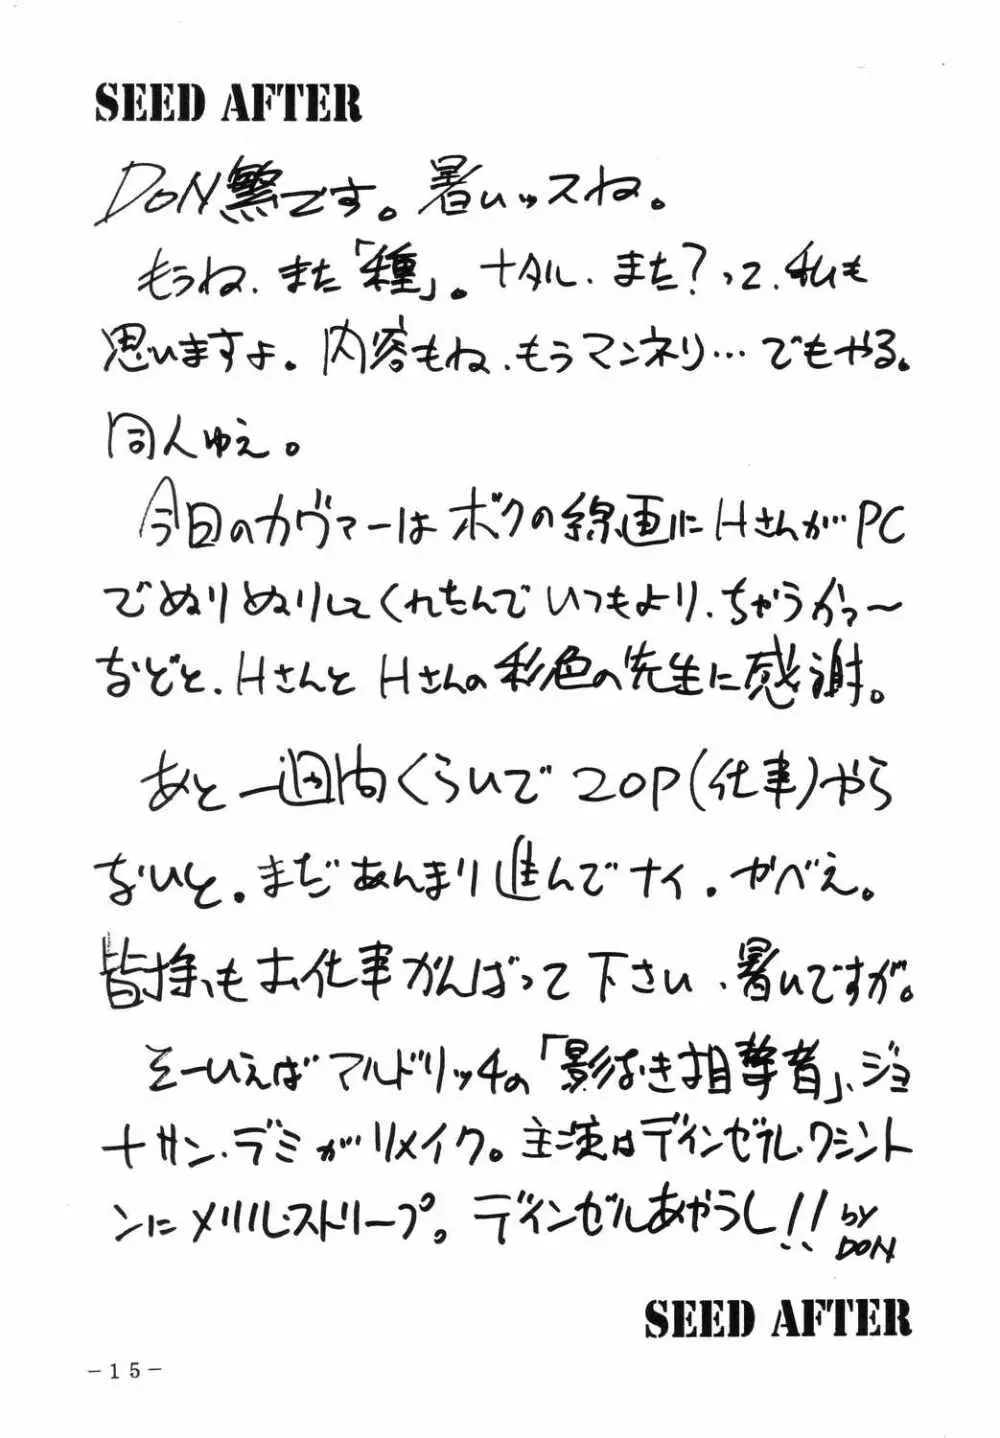 SEED AFTER
DON繁です。暑いッスね。
もうね、また「種」。ナタル、また？って、私も
思いますよ。内容もね、もうマンネリ…でもやる。
同人ゆえ。
今回のカヴァーはボクの線画にHさんが…PC
でぬりぬりしてくれたんでいつもより、ちゃうかァ〜
などと、HさんとHさんの彩色の先生に感謝。
あと一週間くらいで20P(仕事)やら
ないと。まだあんまり進んでナイ。がべえ。
皆様、もお仕事がんばって下さい、暑いですが。
そーいえばマルドリッチの「影なき狙撃者」、ジョ
ナサン・デミがリメイク。主演はディンゼル・ワシント
ンにメリル・ストリープ。ディンゼルあやうし!!
by
DON
SEED AFTER
-15-